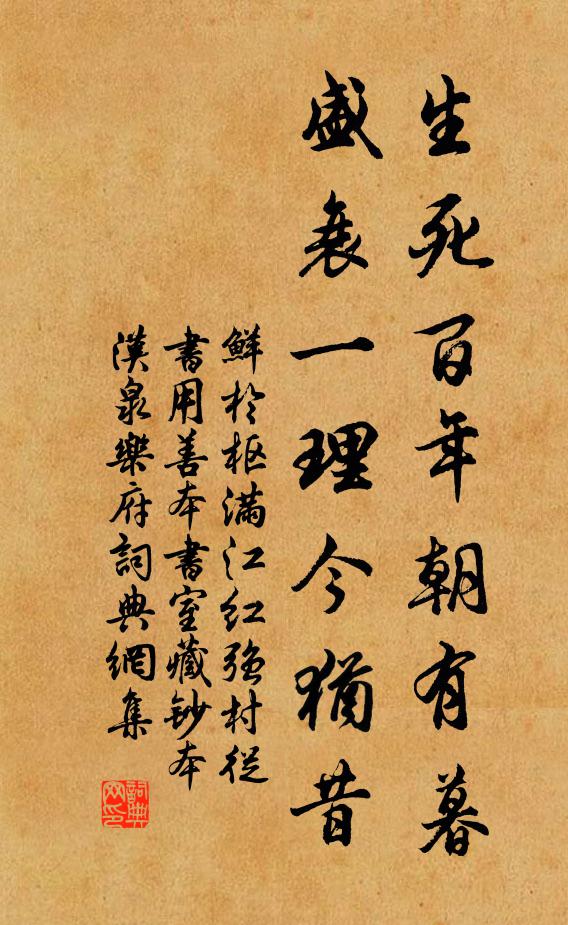 生死百年朝有暮
盛衰一理今猶昔
鮮於枢滿江紅強村從
書用善本書室藏鈔本
漢泉樂府詞典網集
詞典网印